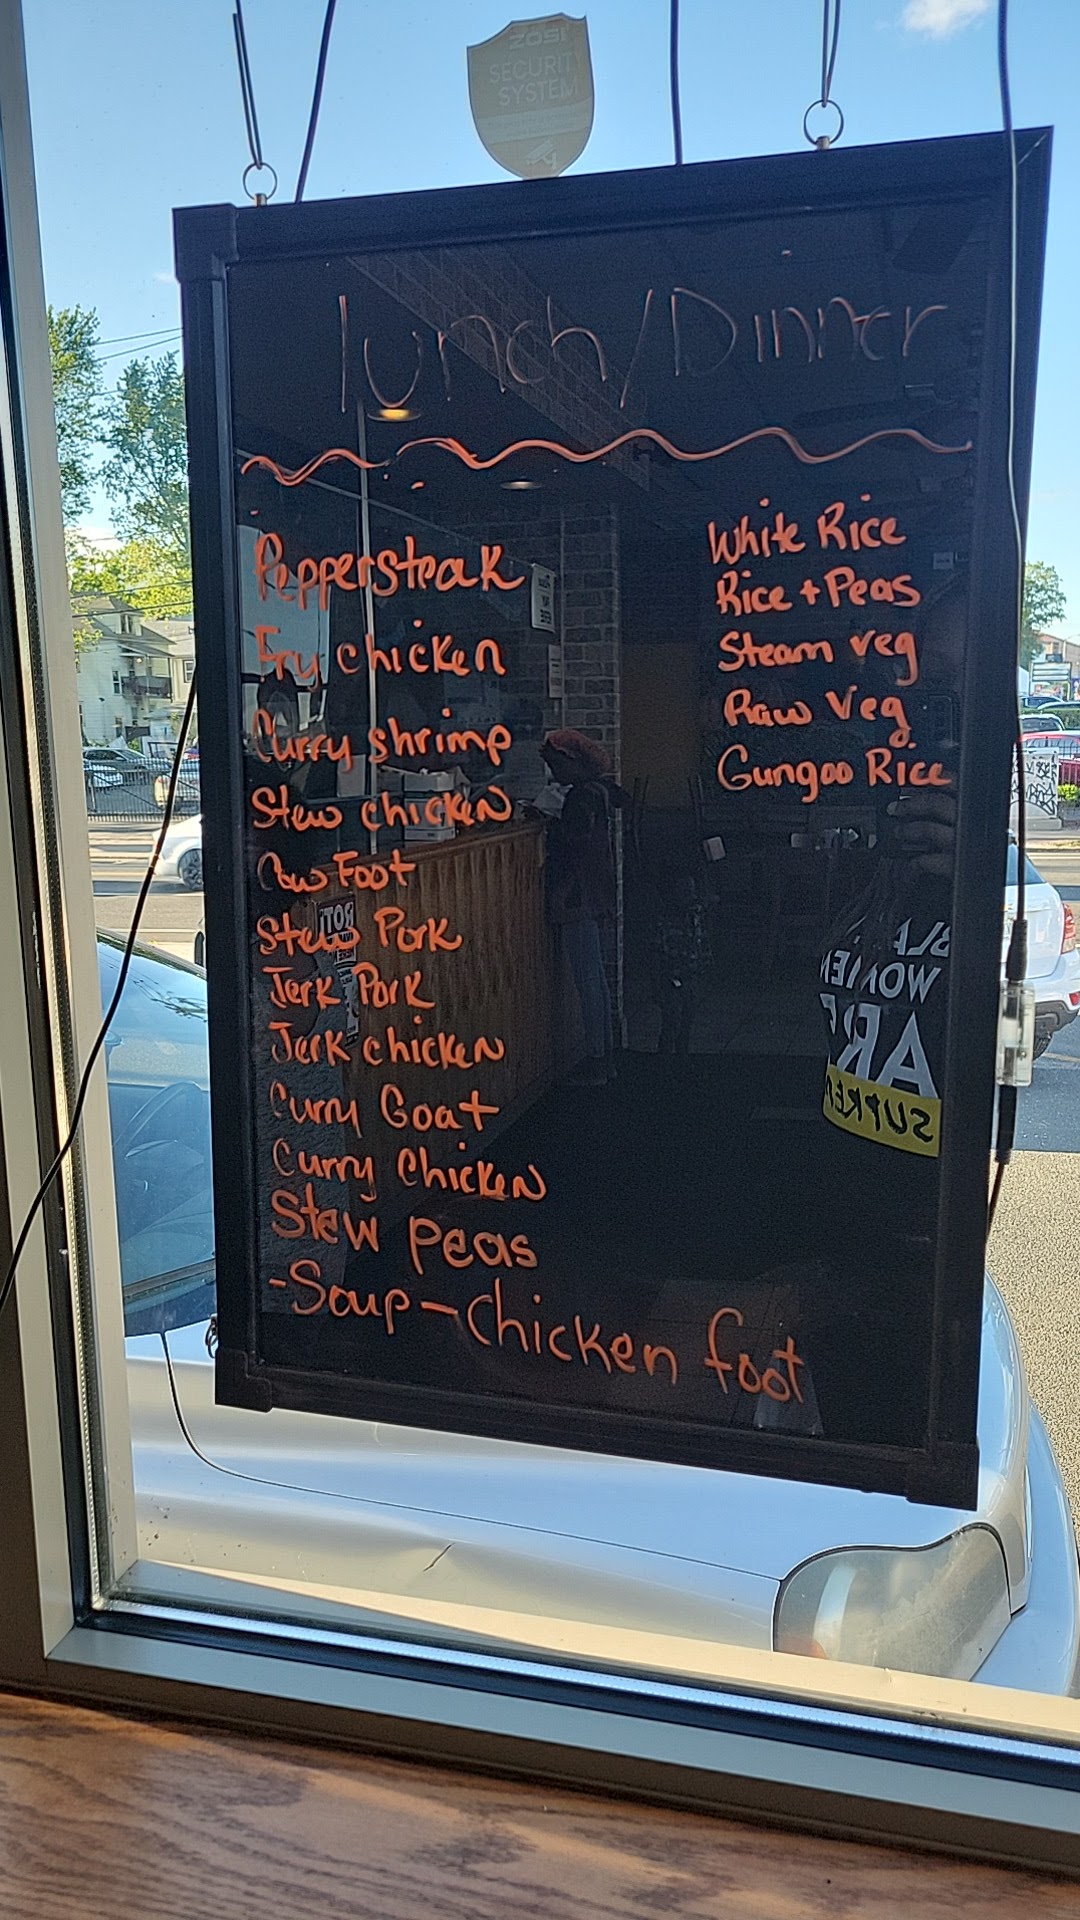 ZOSI
SECURITY
SYSTEM
lunch/Dinner
Peppersteak
Fry chicken
Curry shrimp
Stew chicken
Cow Foot
Stew Pork
Jerk Pork
Jerk chicken
Curry Goat
Curry Chicken
Stew peas
-Soup-Chicken foot
White Rice
Rice + Peas
Steam veg
Raw Veg
Gungoo Rice
WOMEN